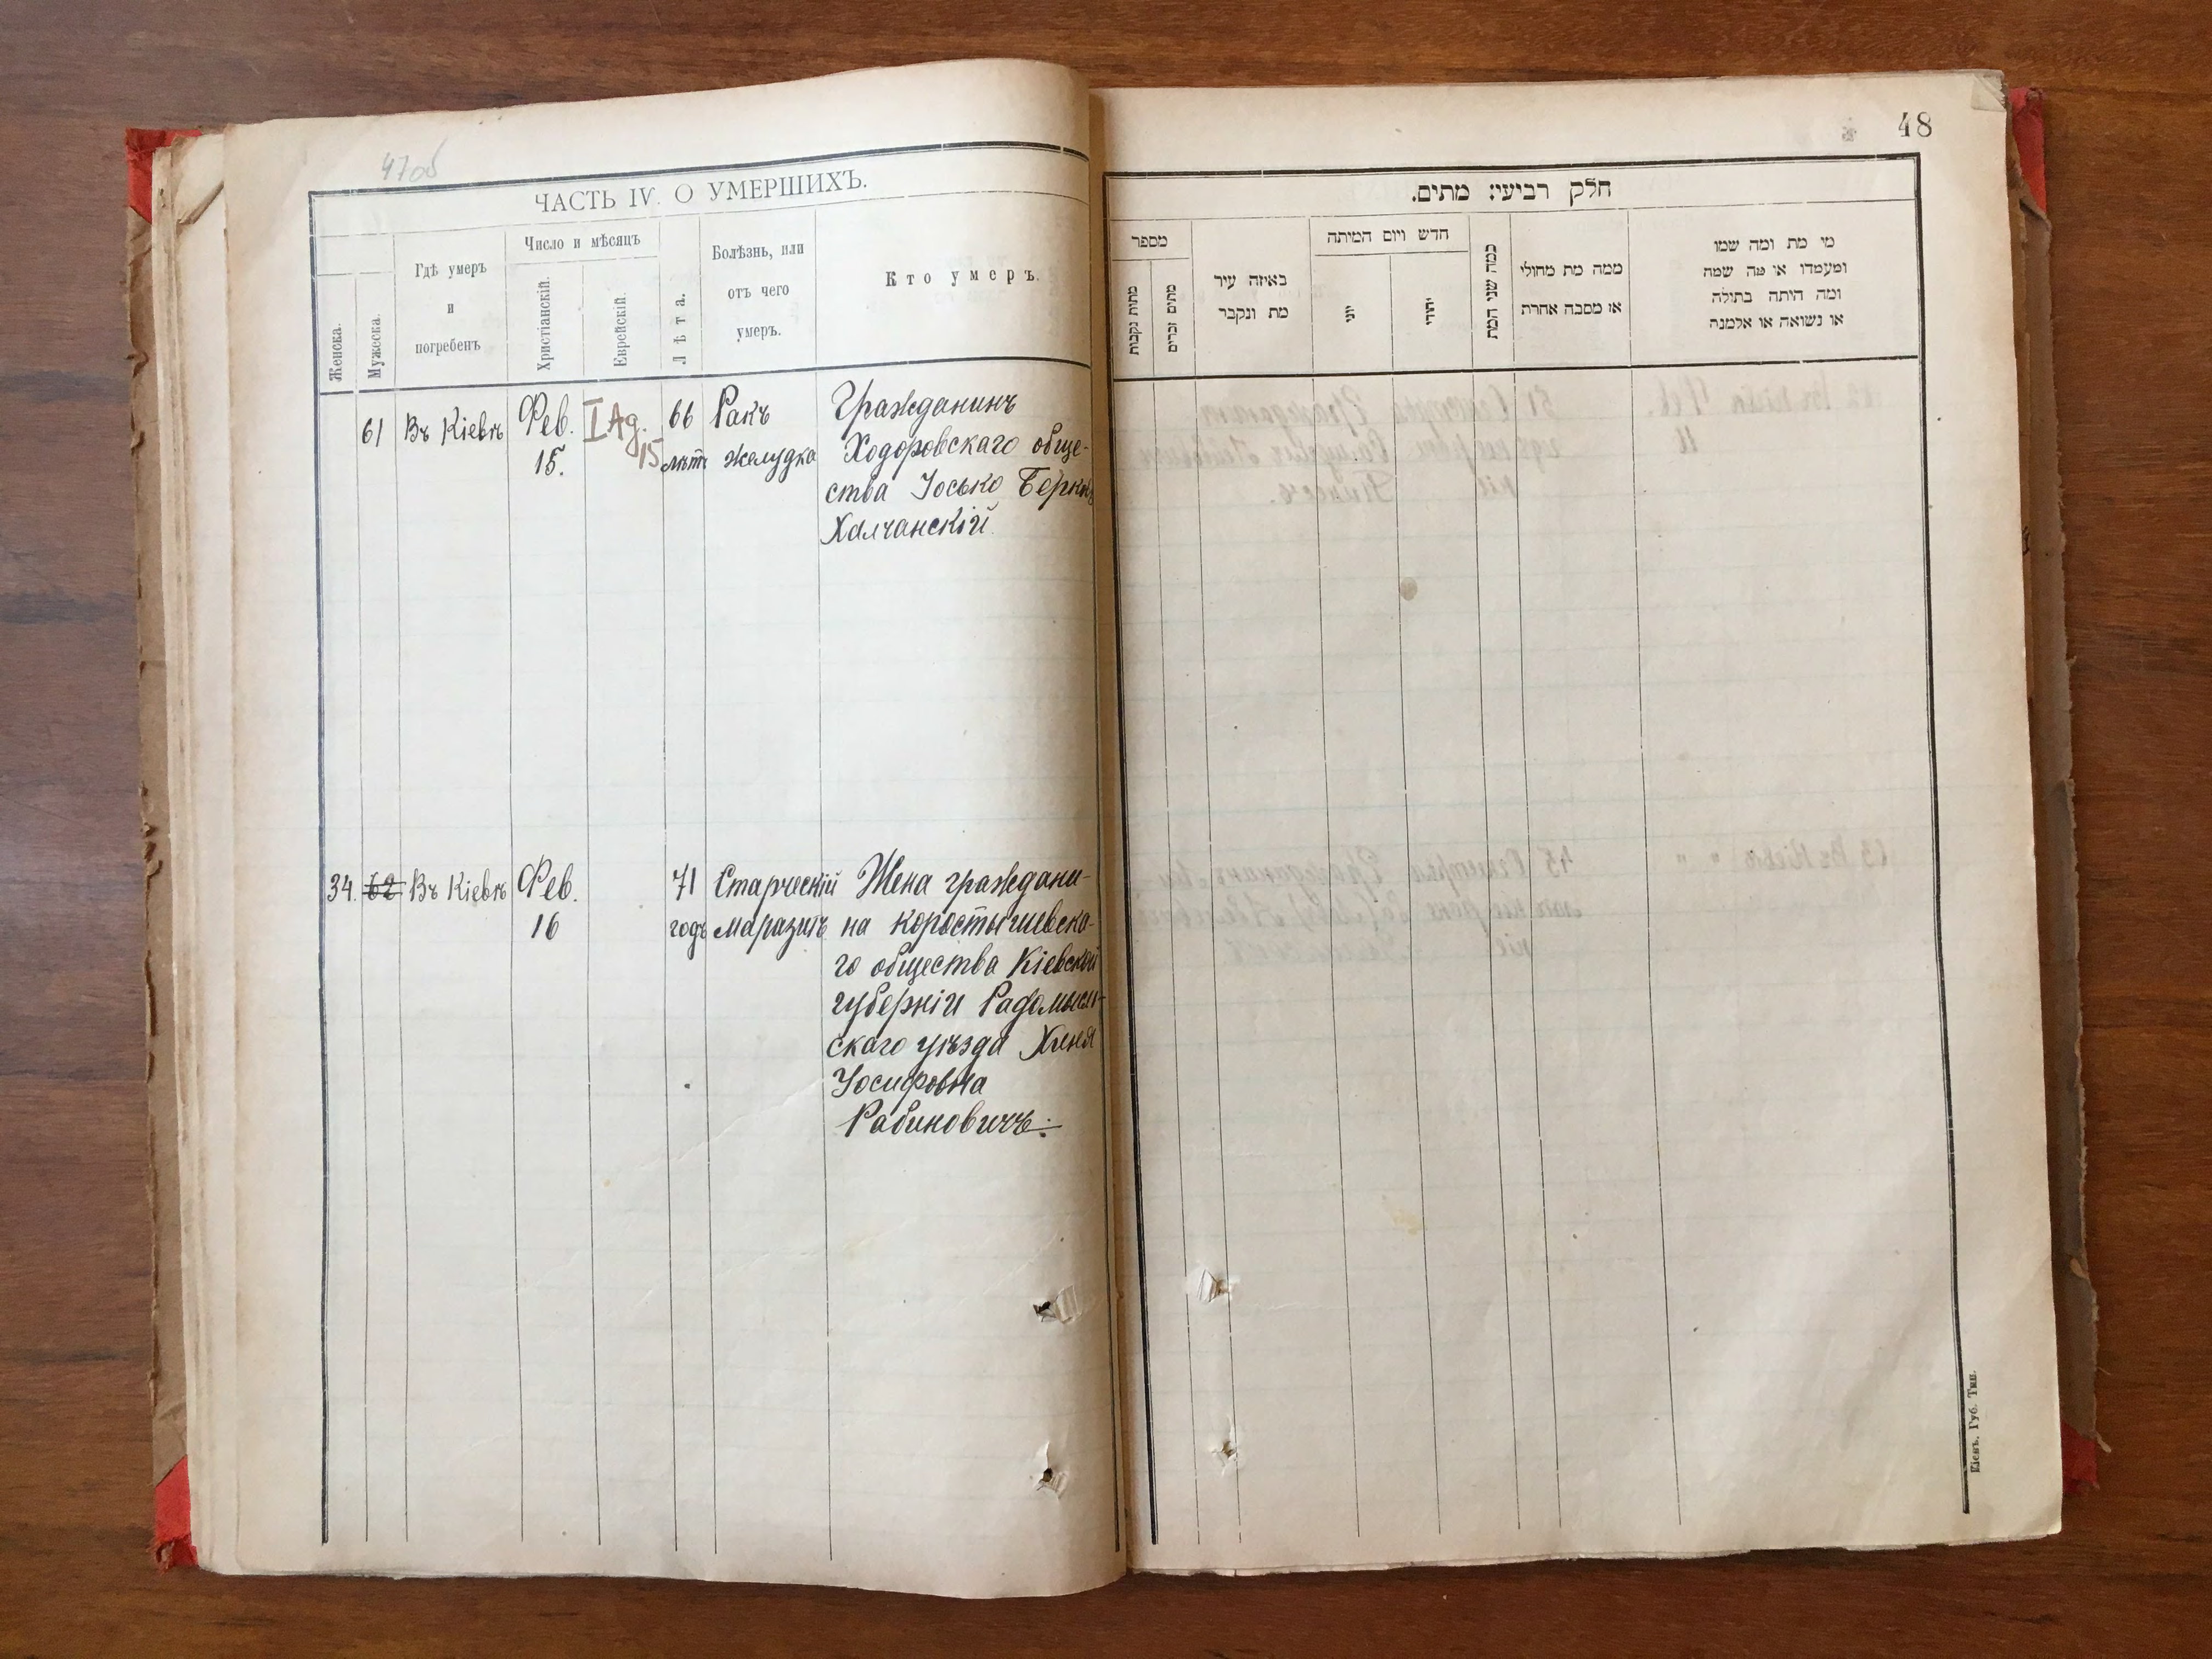 47об
ЧАСТЬ IV. О УМЕРШИХЪ.
Женска.
Мужеска.
Гдѣ умеръ
и
погребенъ
Число и мѣсяцъ
Христіанскій.
Еврейскій.
Лѣта.
Болѣзнь, или
отъ чего
умеръ.
Кто умеръ.
61 Въ Кіевѣ Фев. I Ад. 66 Ракъ Гражданинъ
15. 15 лѣтъ желудка Ходоровскаго обще-
ства Іосько Берков
Халчанскій
34. 62 Въ Кіевѣ Фев. 71 Старческій Жена граждани-
16 годъ маразмъ на коростышевска-
го общества Кіевской
губерніи Радомысль-
скаго уѣзда Хиня
Іосифовна
Рабиновичъ.
48
חלק רביעי: מתים.
מספר
מתות נקבות
מתים זכרים
באיזה עיר
מת ונקבר
חדש ויום המיתה
יוני
יהודי
כמה שני המת
ממה מת מחולי
או מסבה אחרת
מי מת ומה שמו
ומעמדו או מה שמה
ומה היתה בתולה
או נשואה או אלמנה
Кіевъ. Губ. Тип.